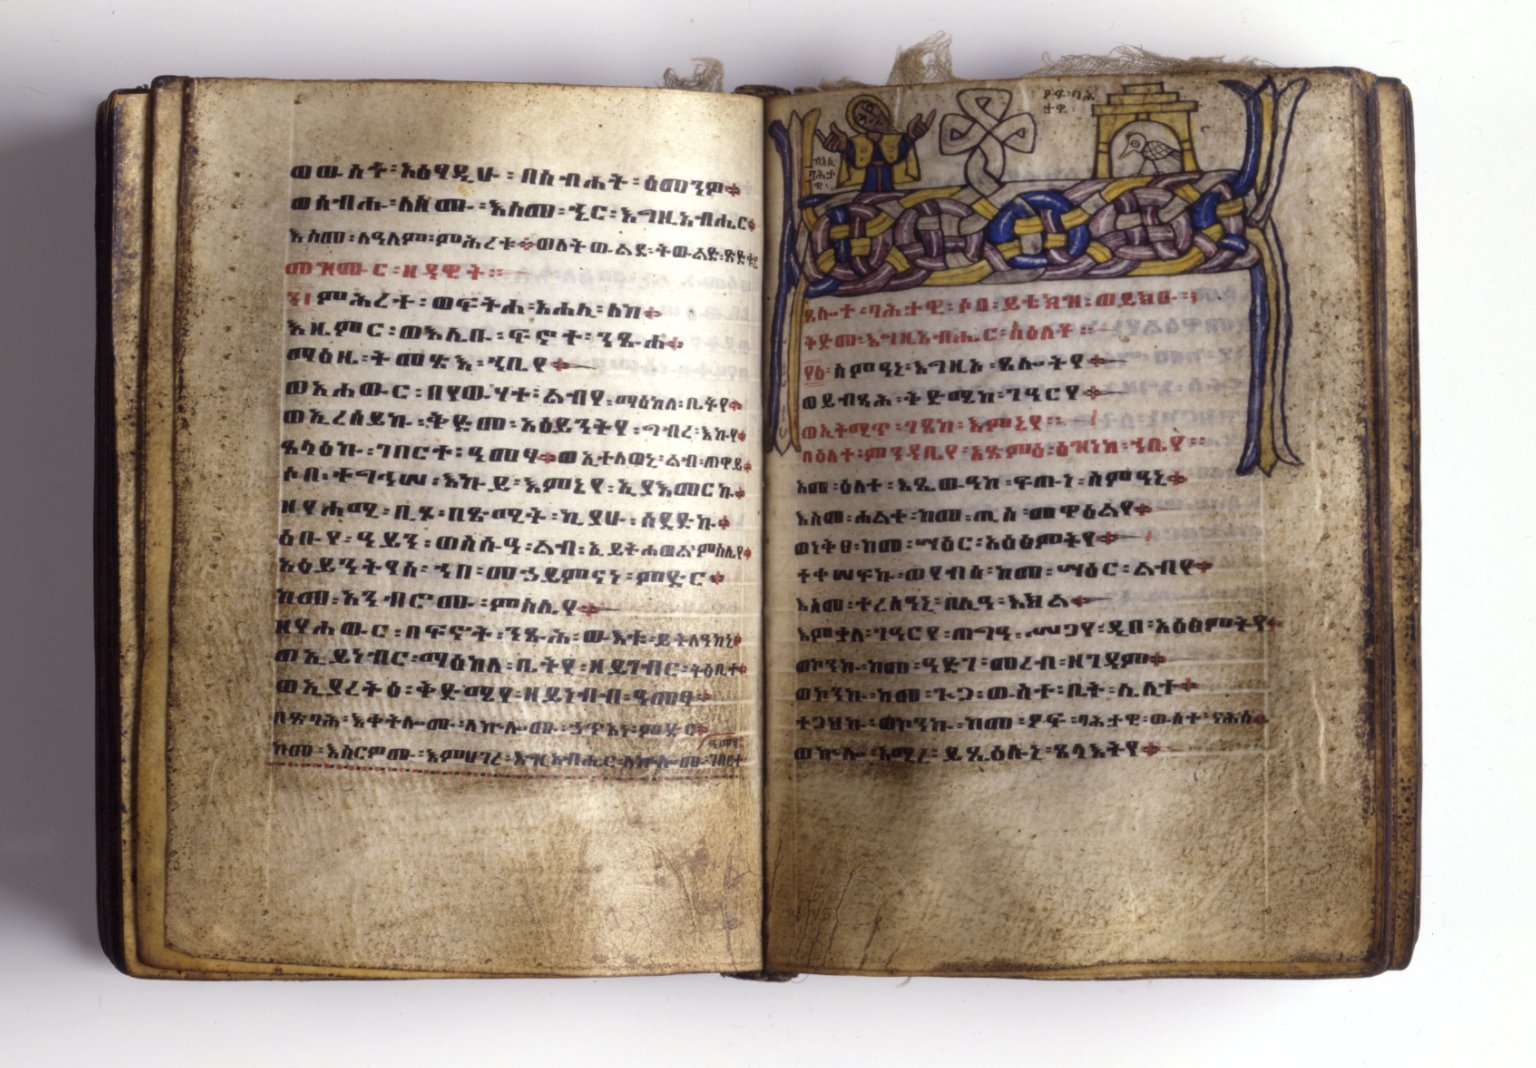 ወውስተ፡አዕፃዲሁ፡በስብሐት፡ዕመንዎ
ወሰብሑ፡ለስሙ፡እስመ፡ኄር፡እግዚአብሔር
እስመ፡ለዓለም፡ምሕረቱ፡ወለትውልደ፡ትውልድ፡ጽድቁ
መዝሙር፡ዘዳዊት።
፻፡ምሕረተ፡ወፍትሐ፡አሐሊ፡ለከ
እዜምር፡ወእሌቡ፡ፍኖተ፡ንጹሐ
ማዕዜ፡ትመጽእ፡ኀቤየ
ወአሐውር፡በየውሃተ፡ልብየ፡ማዕከለ፡ቤትየ
ወኢረሰይኩ፡ቅድመ፡አዕይንትየ፡ግብረ፡እኩየ
ጸላዕኩ፡ገበርተ፡ዓመፃ፡ወኢተለወኒ፡ልብ፡ጠዋይ
ሶበ፡ተግኅሠ፡እኩይ፡እምኔየ፡ኢያእመርኩ
ዘየሐሚ፡ቢጾ፡በጽሚት፡ኪያሁ፡ሰደድኩ
ዕቡየ፡ዓይን፡ወስሱዓ፡ልብ፡ኢይትሐወል፡ምስሌየ
አዕይንትየሰ፡ኀበ፡መኃይምናነ፡ምድር
ከመ፡አንብሮሙ፡ምስሌየ
ዘየሐውር፡በፍኖት፡ንጹሕ፡ውእቱ፡ይትለዓከኒ
ወኢይነብር፡ማዕከለ፡ቤትየ፡ዘይገብር፡ትዕቢተ
ወኢያረትዕ፡ቅድሜየ፡ዘይነብብ፡ዓመፃ
በጽባሕ፡እቀትሎሙ፡ለኵሎሙ፡ኃጥኣነ፡ምድር
ዓመፃ
ከመ፡እሰርዎሙ፡እምሀገረ፡እግዚአብሔር፡ለኵሎሙ፡ገበርተ
ብእሲ
ባሕታ
ዊ
ዖፍ፡ባሕ
ታዊ
ጸሎተ፡ባሕታዊ፡ሶበ፡ይቴክዝ፡ወይክዑ፡
ቅድመ፡እግዚአብሔር፡ስዕለቶ።
፻፩፡ስምዓኒ፡እግዚኦ፡ጸሎትየ
ወይብጻሕ፡ቅድሜከ፡ገዓርየ
ወኢትሚጥ፡ገጸከ፡እምኔየ።
በዕለተ፡ምንዳቤየ፡አጽምዕ፡ዕዝነከ፡ኀቤየ።
አመ፡ዕለተ፡እጼውዓከ፡ፍጡነ፡ስምዓኒ
እስመ፡ሐልቀ፡ከመ፡ጢስ፡መዋዕልየ
ወነቅፀ፡ከመ፡ሣዕር፡አዕፅምትየ
ተቀሠፍኩ፡ወየብሰ፡ከመ፡ሣዕር፡ልብየ
እስመ፡ተረስዓኒ፡በሊዓ፡እክል
እምቃለ፡ገዓርየ፡ጠግዓ፡ሥጋየ፡ዲበ፡አዕፅምትየ
ወኮንኩ፡ከመ፡ዓድገ፡መረብ፡ዘገዳም
ወኮንኩ፡ከመ፡ጉጋ፡ውስተ፡ቤት፡ሌሊት
ተጋህኩ፡ወኮንኩ፡ከመ፡ዖፍ፡ባሕታዊ፡ውስተ፡ናሕስ
ወኵሎ፡አሚረ፡ይጼዕሉኒ፡ጸላእትየ